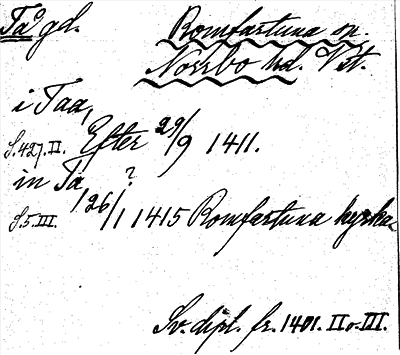 Tå gd. Romfartuna sn.
Norrbo hd. Vst.
i Taa,
S. 427. II. Efter 29/9 1411.
in Ta, ?
S. 5. III. 26/1 1415 Romfartuna kyrka
Sv. dipl. fr. 1401. II o. III.